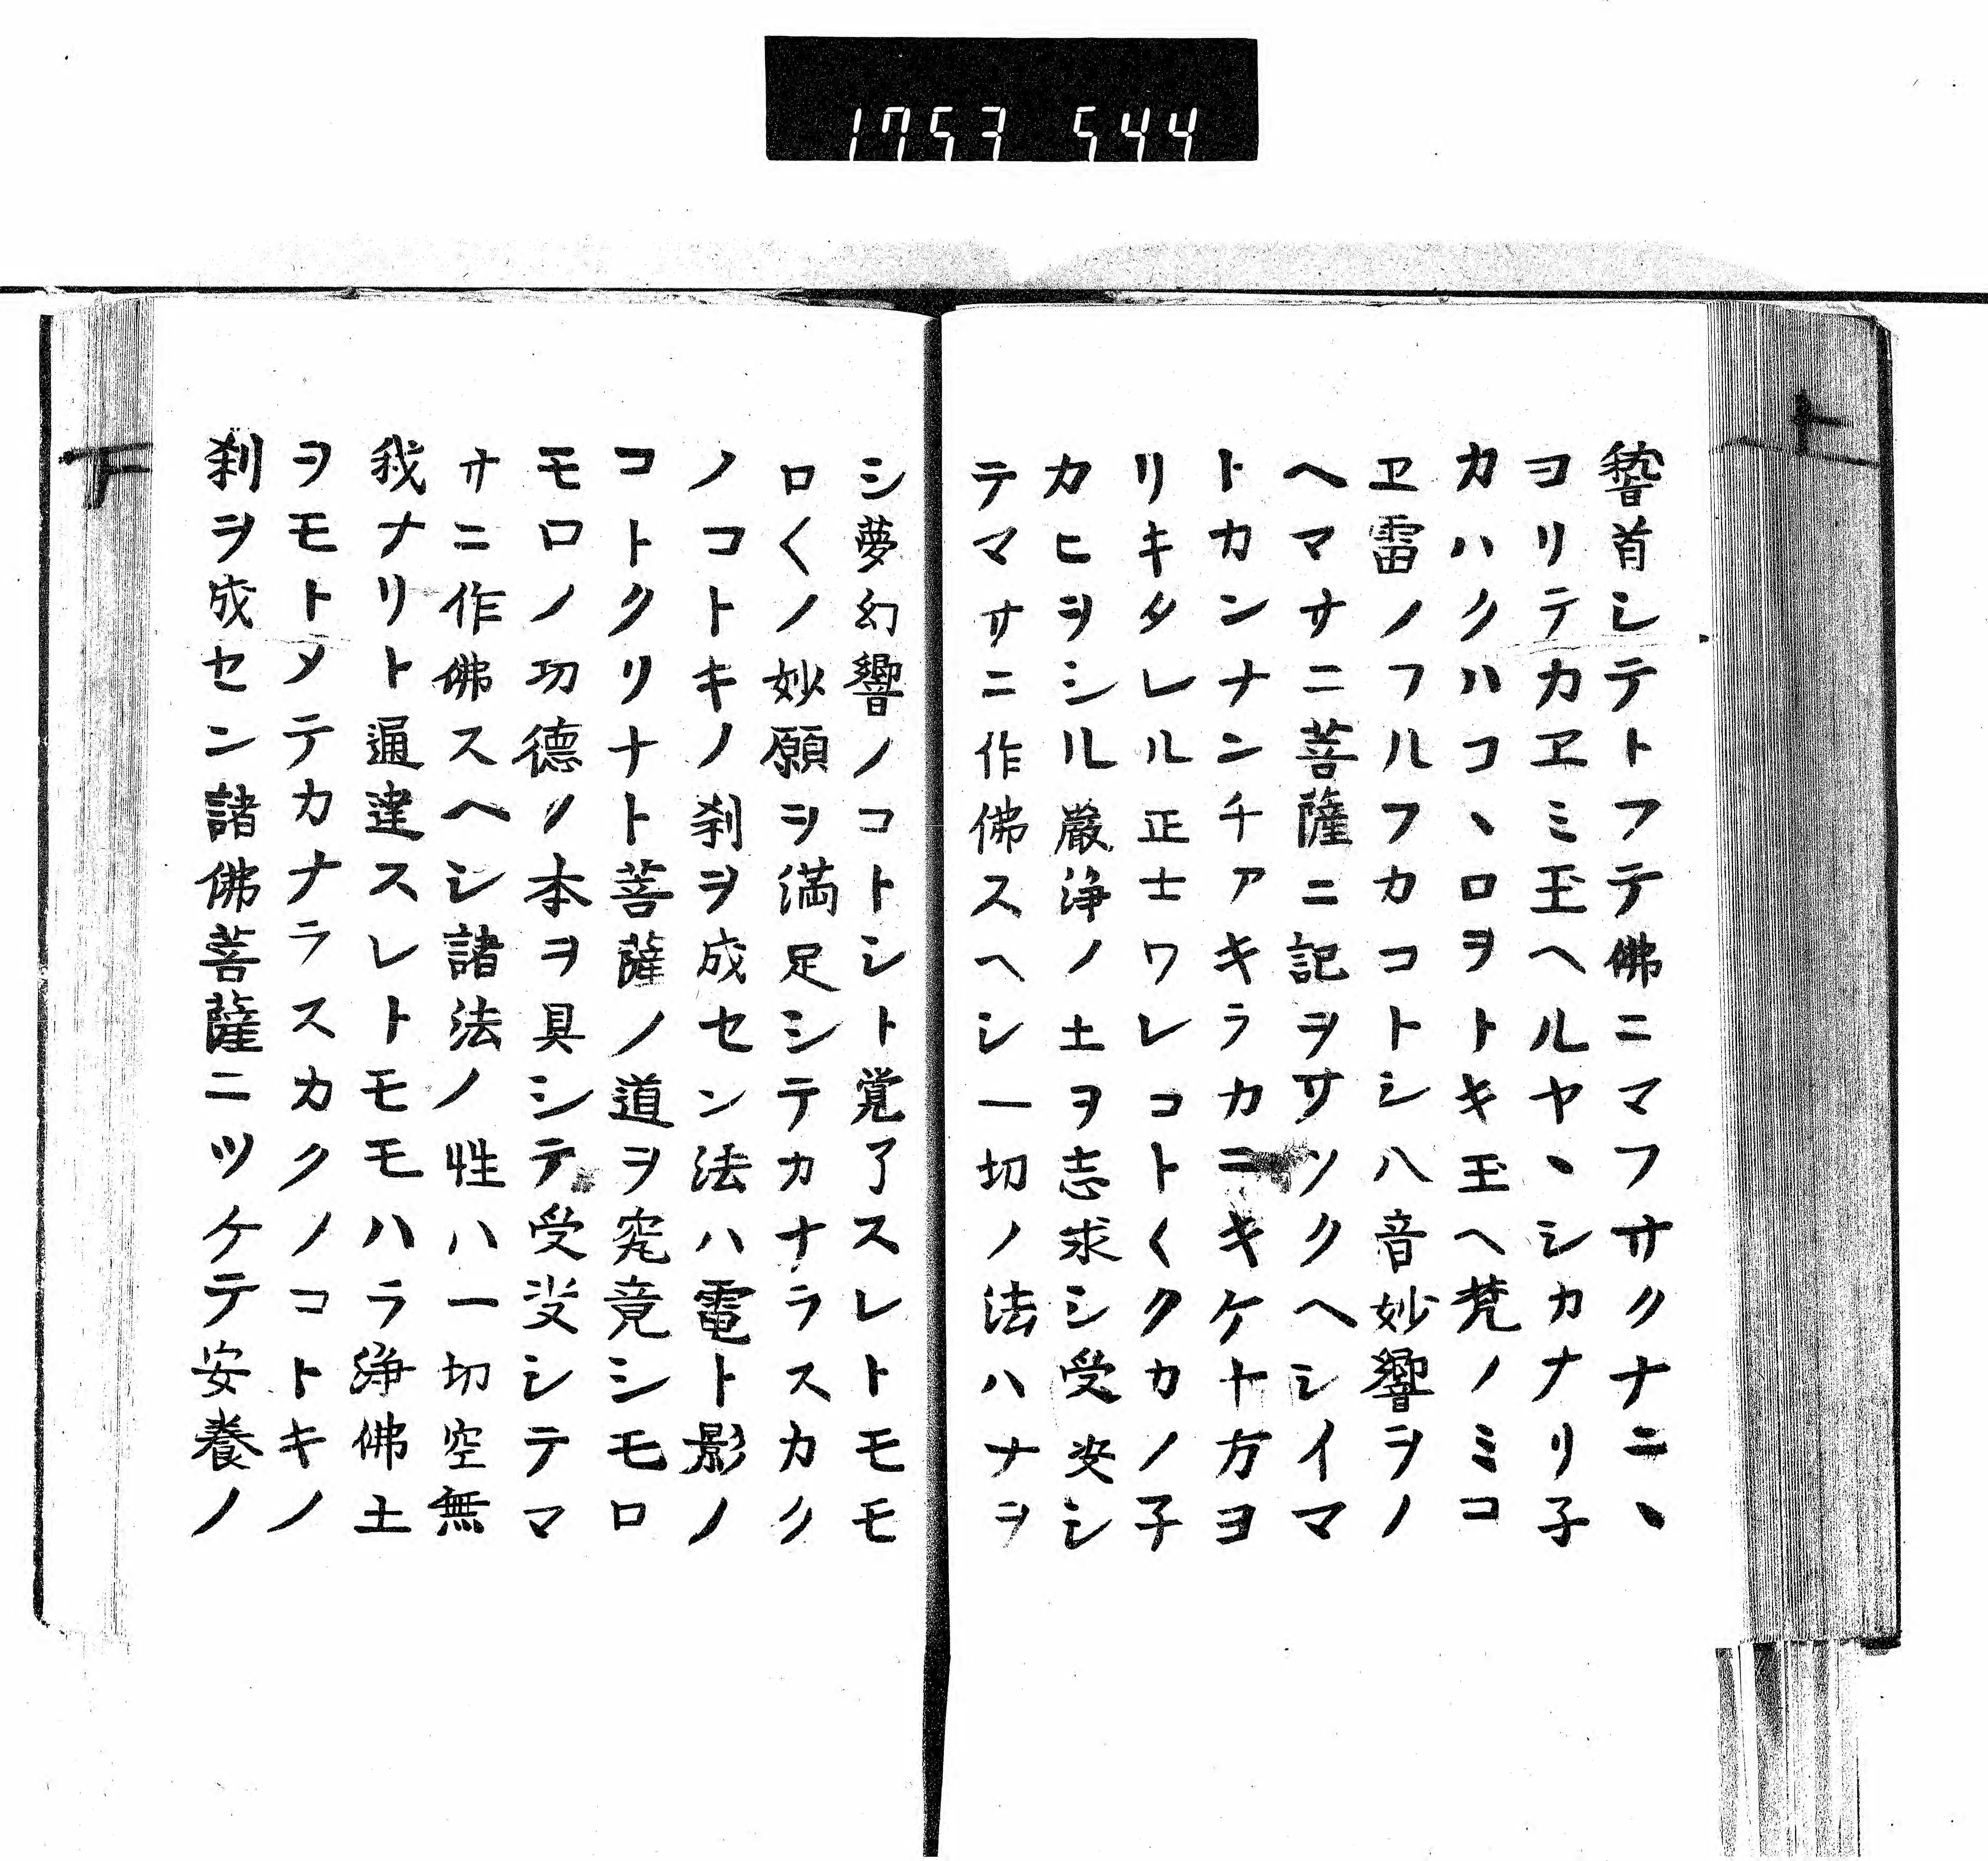 1753 544
䭫首シテトフテ佛ニマフサクナニヽ
ヨリテカヱミ玉ヘルヤヽシカナリ子
カハクハコヽロヲトキ玉ヘ梵ノミコ
ヱ雷ノフルフカコトシ八音妙響ヲノ
ヘマサニ菩薩ニ記ヲサツクヘシイマ
トカンナンチアキラカニキケ十方ヨ
リキタレル正士ワレコト〱クカノ子
カヒヲシル嚴淨ノ土ヲ志求シ受决シ
テマサニ作佛スヘシ一切ノ法ハナヲ
シ夢幻響ノコトシト覚了スレトモモ
ロ〱ノ妙願ヲ満足シテカナラスカク
ノコトキノ刹ヲ成セン法ハ電ト影ノ
コトクリナト菩薩ノ道ヲ究竟シモロ
モロノ功德ノ本ヲ具シテ受决シテマ
サニ作佛スヘシ諸法ノ性ハ一切空無
我ナリト通達スレトモモハラ淨佛土
ヲモトメテカナラスカクノコトキノ
刹ヲ成セン諸佛菩薩ニツケテ安養ノ